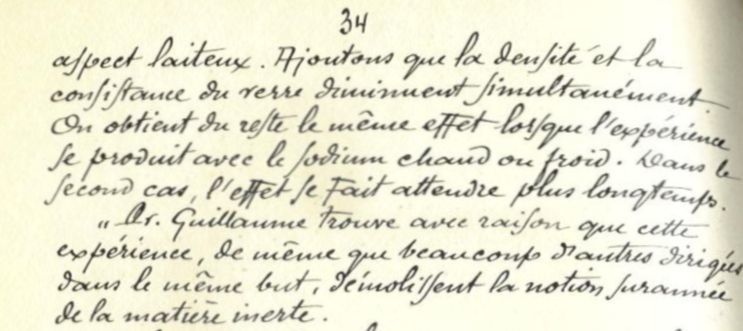 34
aspect laiteux. Ajoutons que la densité et la
consistance du verre diminuent simultanément.
On obtient du reste le même effet lorsque l'expérience
se produit avec le sodium chaud ou froid. Dans le
second cas, l'effet se fait attendre plus longtemps.
„ Dr. Guillaume trouve avec raison que cette
expérience, de même que beaucoup d'autres dirigées
dans le même but, démolissent la notion surannée
de la matière inerte.